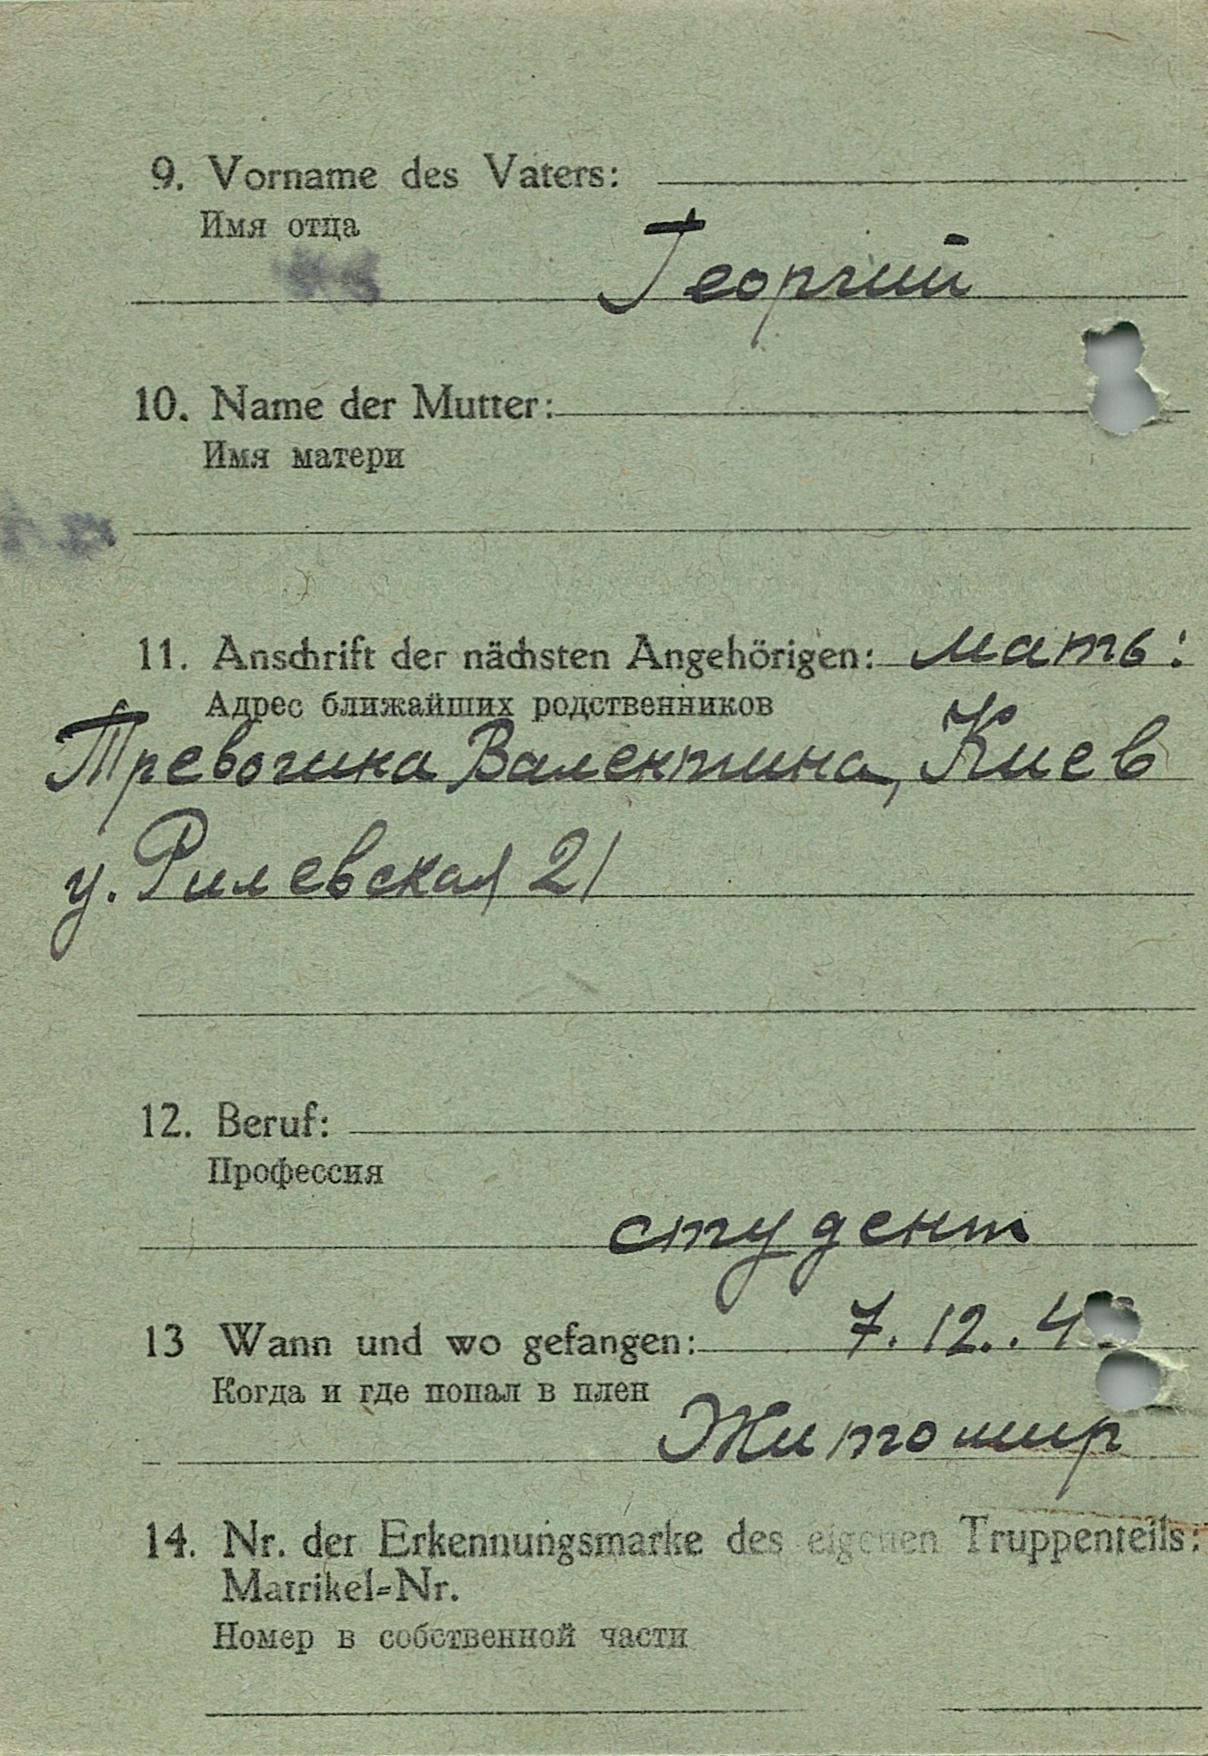 9. Vorname des Vaters:
Имя отца
Георгий
10. Name der Mutter:
Имя матери
11. Anschrift der nächsten Angehörigen: мать:
Адрес ближайших родственников
Тревогина Валентина, Киев
у. Рилевская 21
12. Beruf:
Профессия
студент
13 Wann und wo gefangen: 7. 12. . 4
Когда и где попал в плен
Житомир
14. Nr. der Erkennungsmarke des eigenen Truppenteils:
Matrikel-Nr.
Номер в собственной части